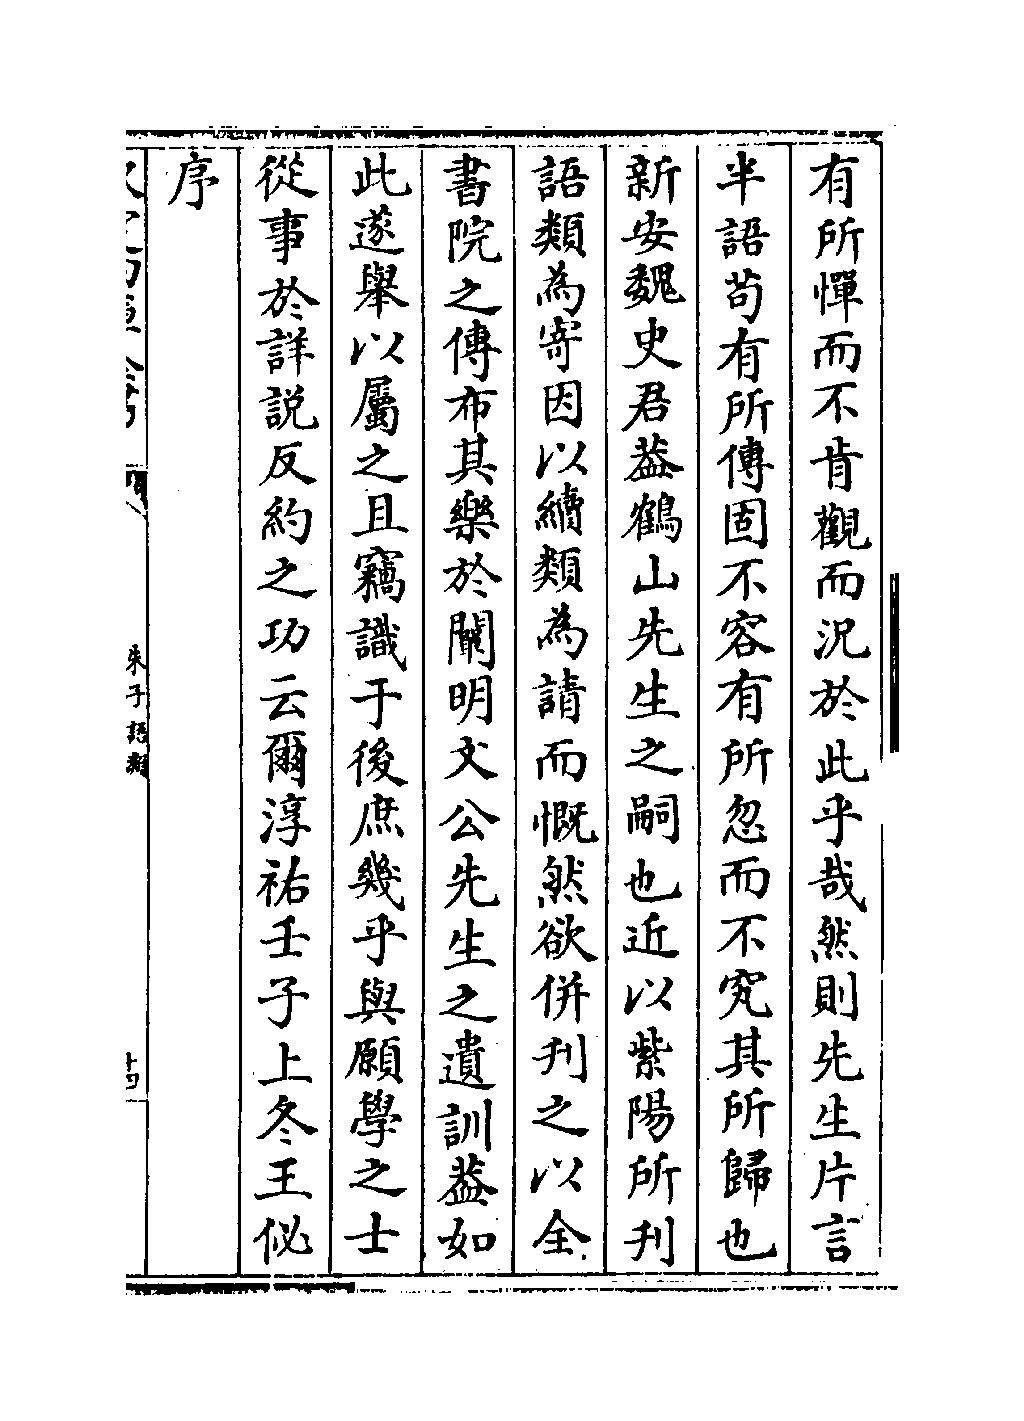 有所憚而不肯觀而況於此乎哉然則先生片言
半語苟有所傳固不容有所忽而不究其所歸也
新安魏史君葢鶴山先生之嗣也近以紫陽所刋
語類為寄因以續類為請而慨然欲併刋之以全
書院之傳布其樂於闡明文公先生之遺訓葢如
此遂舉以屬之且竊識于後庶幾乎與願學之士
從事於詳説反約之功云爾淳祐壬子上冬王佖
序
朱子語類
十四